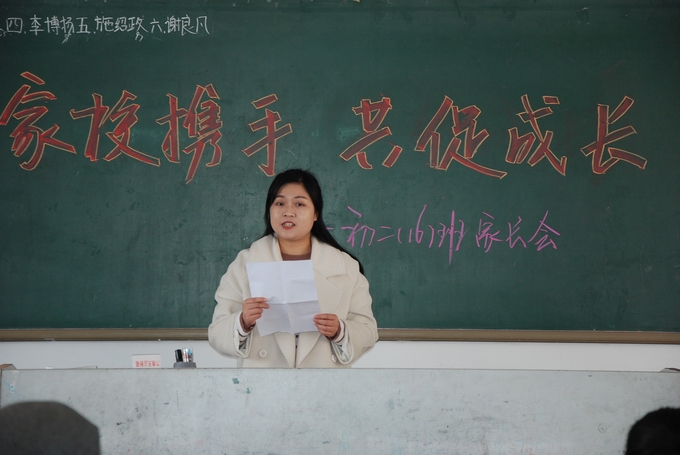 四.李博扬 五.施绍政 六.谢良凡
家校携手 共促成长
—初二(16)班家长会